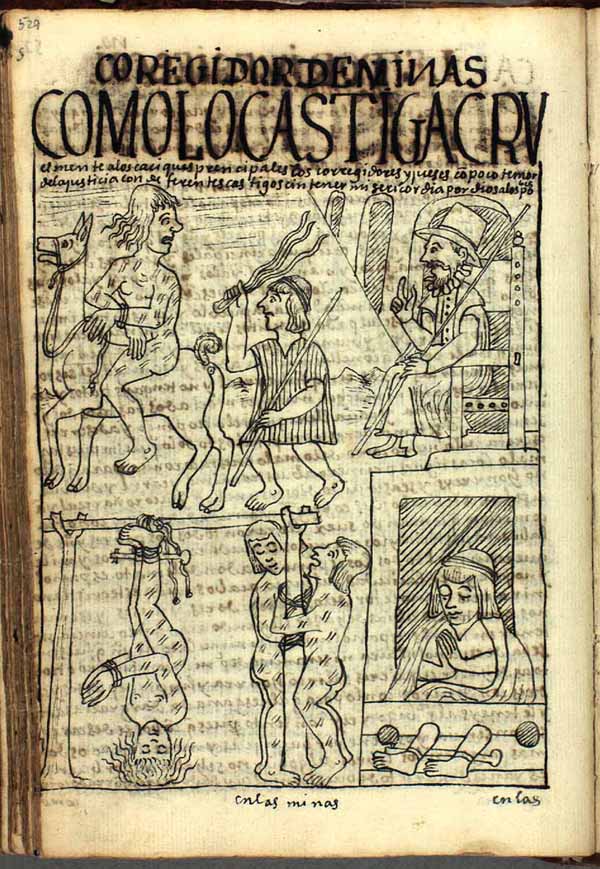 529
COREGIDOR DE MINAS
COMO LO CASTIGA CRV
elmente a los caciques prencipales los corregidores y jueses co poco temor
de la justicia con deferentes castigos cin tener miziricordia por dios a los pobres
en las minas
en las